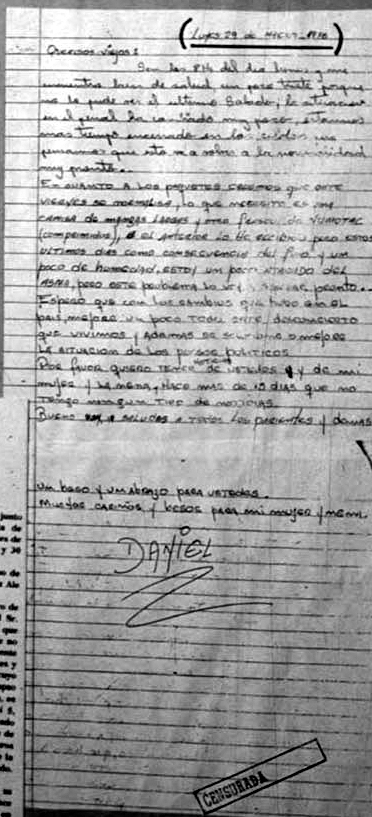 (Lunes 29 de Marzo_1976)
Queridos viejos:
Son las 8 Hs del dia lunes y me
encuentro bien de salud, un poco triste porque
no los pude ver el ultimo Sabado, la situacion
en el penal ha cambiado muy poco, estamos
mas tiempo encerrados en las celdas
pensamos que esto va a volver a la normalidad
muy pronto..
En cuanto a los paquetes creemos que este
viernes se normalice, lo que necesito es una
camisa de mangas largas y otro frasco de
(comprimidos), el anterior lo he recibido pero estos
ultimos dias como consecuencia del frio y un
poco de humedad, estoy un poco atacado del
asma, pero este problema lo voy a superar pronto..
Espero que con los cambios que hubo en el
pais, mejore un poco todo este desconcierto
que vivimos y ademas se solucione o mejore
la situacion de los presos politicos
Por favor quiero tener noticias de ustedes y de mi
mujer y la nena, hace mas de 15 dias que no
tengo ningun tipo de noticias.
Bueno saludos a todos los parientes y demas
Un beso y un abrazo para ustedes.
Muchos cariños y besos para mi mujer y nena.
DANIEL
CENSURADA
junio
de
de
y 30
de
Ale
de
Sr.
que
no
y